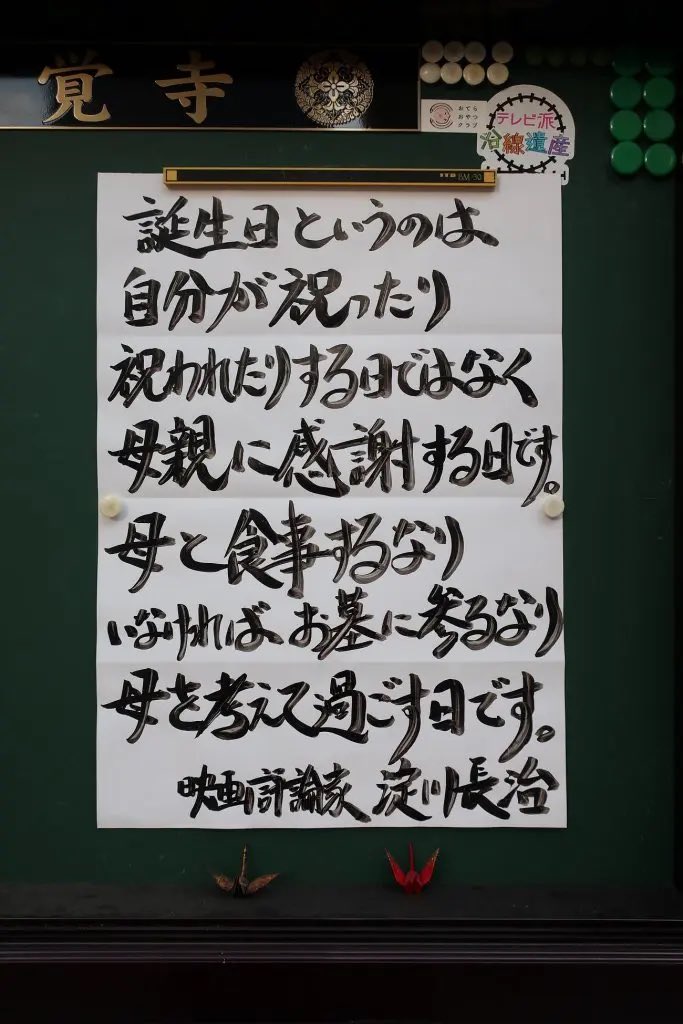 覚寺
おてら
おやつ
クラブ
テレビ派
沿線遺産
BM-30
誕生日というのは
自分が祝ったり
祝われたりする日ではなく
母親に感謝する日です。
母と食事するなり
いなければ、お墓に参るなり
母を考えて過ごす日です。
映画評論家 淀川長治